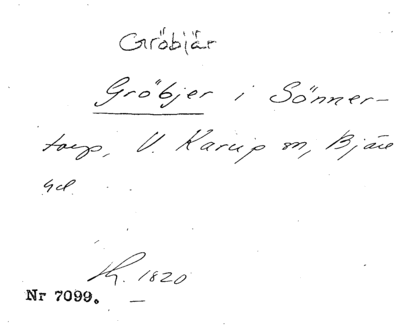 Gröbjär
Gröbjer i Sönner-
torp, V. Karup sn, Bjäre
hd
1820
Nr 7099.